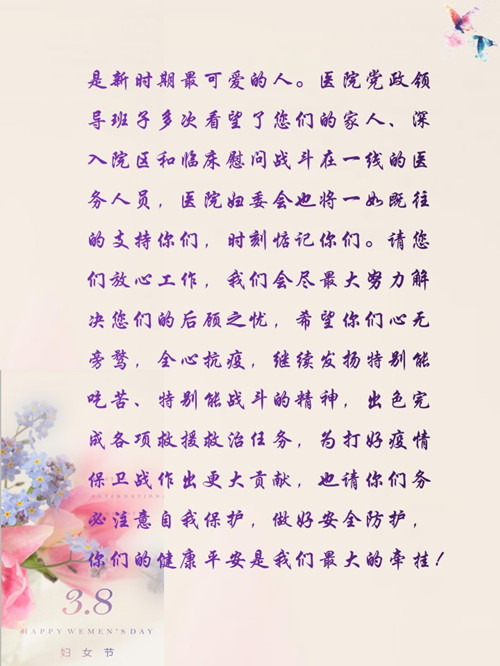 是新时期最可爱的人。医院党政领
导班子多次看望了您们的家人、深
入院区和临床慰问战斗在一线的医
务人员，医院妇委会也将一如既往
的支持你们，时刻惦记你们。请您
们放心工作，我们会尽最大努力解
决您们的后顾之忧，希望你们心无
旁骛，全心抗疫，继续发扬特别能
吃苦、特别能战斗的精神，出色完
成各项救援救治任务，为打好疫情
保卫战作出更大贡献，也请你们务
必注意自我保护，做好安全防护，
你们的健康平安是我们最大的牵挂！
3.8
HAPPY WEMEN'S DAY
妇女节